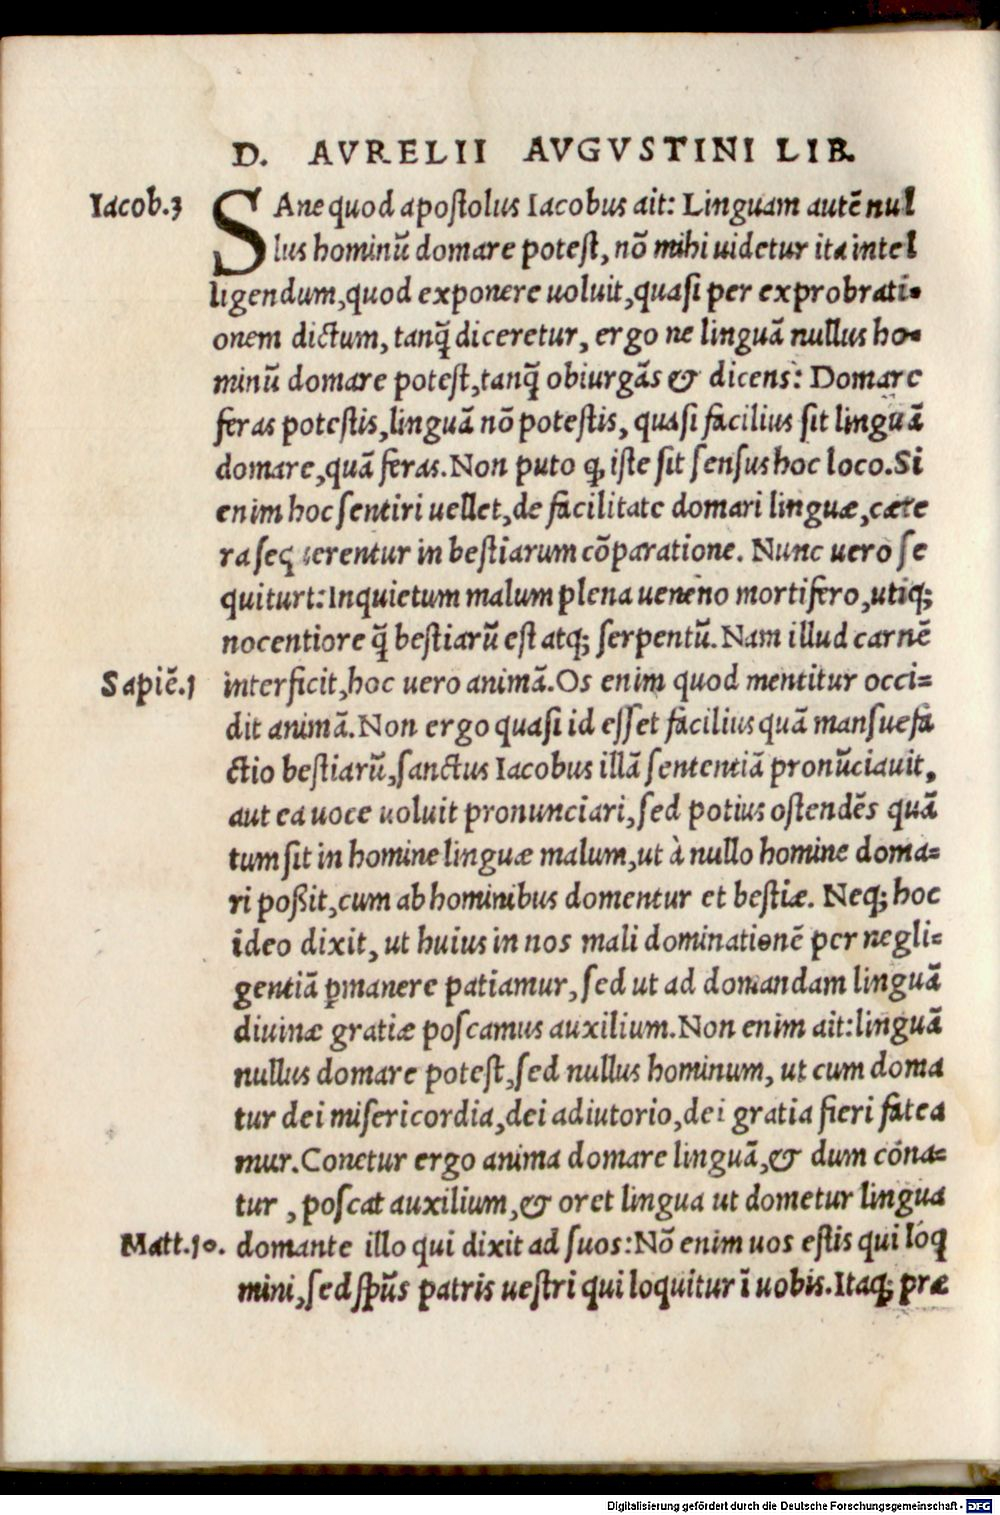 D. AVRELII AVGVSTINI LIB.
Iacob.3
SAne quod apostolus Iacobus ait: Linguam autē nul
lus hominū domare potest, nō mihi uidetur ita intel
ligendum, quod exponere uoluit, quasi per exprobrati-
onem dictum, tanq̄ diceretur, ergo ne linguā nullus ho-
minū domare potest, tanq̄ obiurgās & dicens: Domare
feras potestis, linguā nō potestis, quasi facilius sit linguā
domare, quā feras. Non puto ꝙ iste sit sensus hoc loco. Si
enim hoc sentiri uellet, de facilitate domari linguæ, cæte
ra sequerentur in bestiarum cōparatione. Nunc uero se
quiturt: Inquietum malum plena ueneno mortifero, utiq;
nocentiore q̄ bestiarū est atq; serpentū. Nam illud carnē
Sapiē.1
interficit, hoc uero animā. Os enim quod mentitur occi=
dit animā. Non ergo quasi id esset facilius quā mansuefa
ctio bestiarū, sanctus Iacobus illā sententiā pronūciauit,
aut ea uoce uoluit pronunciari, sed potius ostendēs quā
tum sit in homine linguæ malum, ut à nullo homine doma=
ri poßit, cum ab hominibus domentur et bestiæ. Neq; hoc
ideo dixit, ut huius in nos mali dominationē per negli=
gentiā ꝑmanere patiamur, sed ut ad domandam linguā
diuinæ gratiæ poscamus auxilium. Non enim ait: linguā
nullus domare potest, sed nullus hominum, ut cum doma
tur dei misericordia, dei adiutorio, dei gratia fieri fatea
mur. Conetur ergo anima domare linguā, & dum cōna=
tur, poscat auxilium, & oret lingua ut dometur lingua
Matt.10.
domante illo qui dixit ad suos: Nō enim uos estis qui loq
mini, sed sp̄us patris uestri qui loquitur ī uobis. Itaq; præ
Digitalisierung gefördert durch die Deutsche Forschungsgemeinschaft - DFG